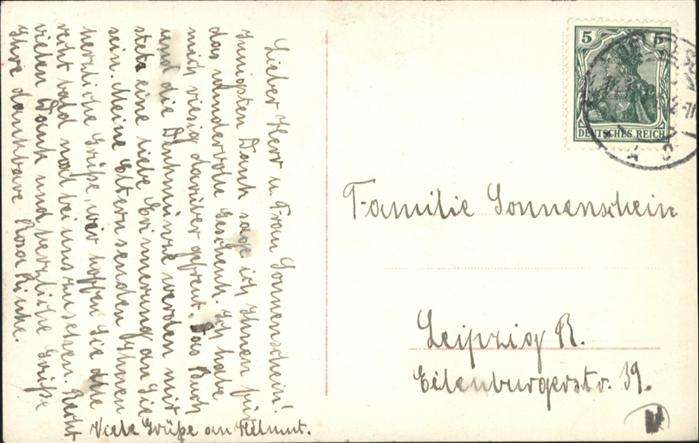 Lieber Herr u. Frau Sonnenschein!
Innigsten Dank sage ich Ihnen für
das wundervolle Geschenk. Ich habe
mich riesig darüber gefreut. Das Buch
und die Denkmünze werden mir
stets eine liebe Erinnerung an Sie
sein. Meine Eltern senden Ihnen
herzliche Grüße, wir hoffen Sie alle
recht bald mal bei uns zu sehen. Recht
vielen Dank und herzliche Grüße
Ihre dankbare Rosa
Viele Grüße an Helmut.
5 5
DEUTSCHES REICH
Familie Sonnenschein
Leipzig R.
Eilenburgerstr. 39.